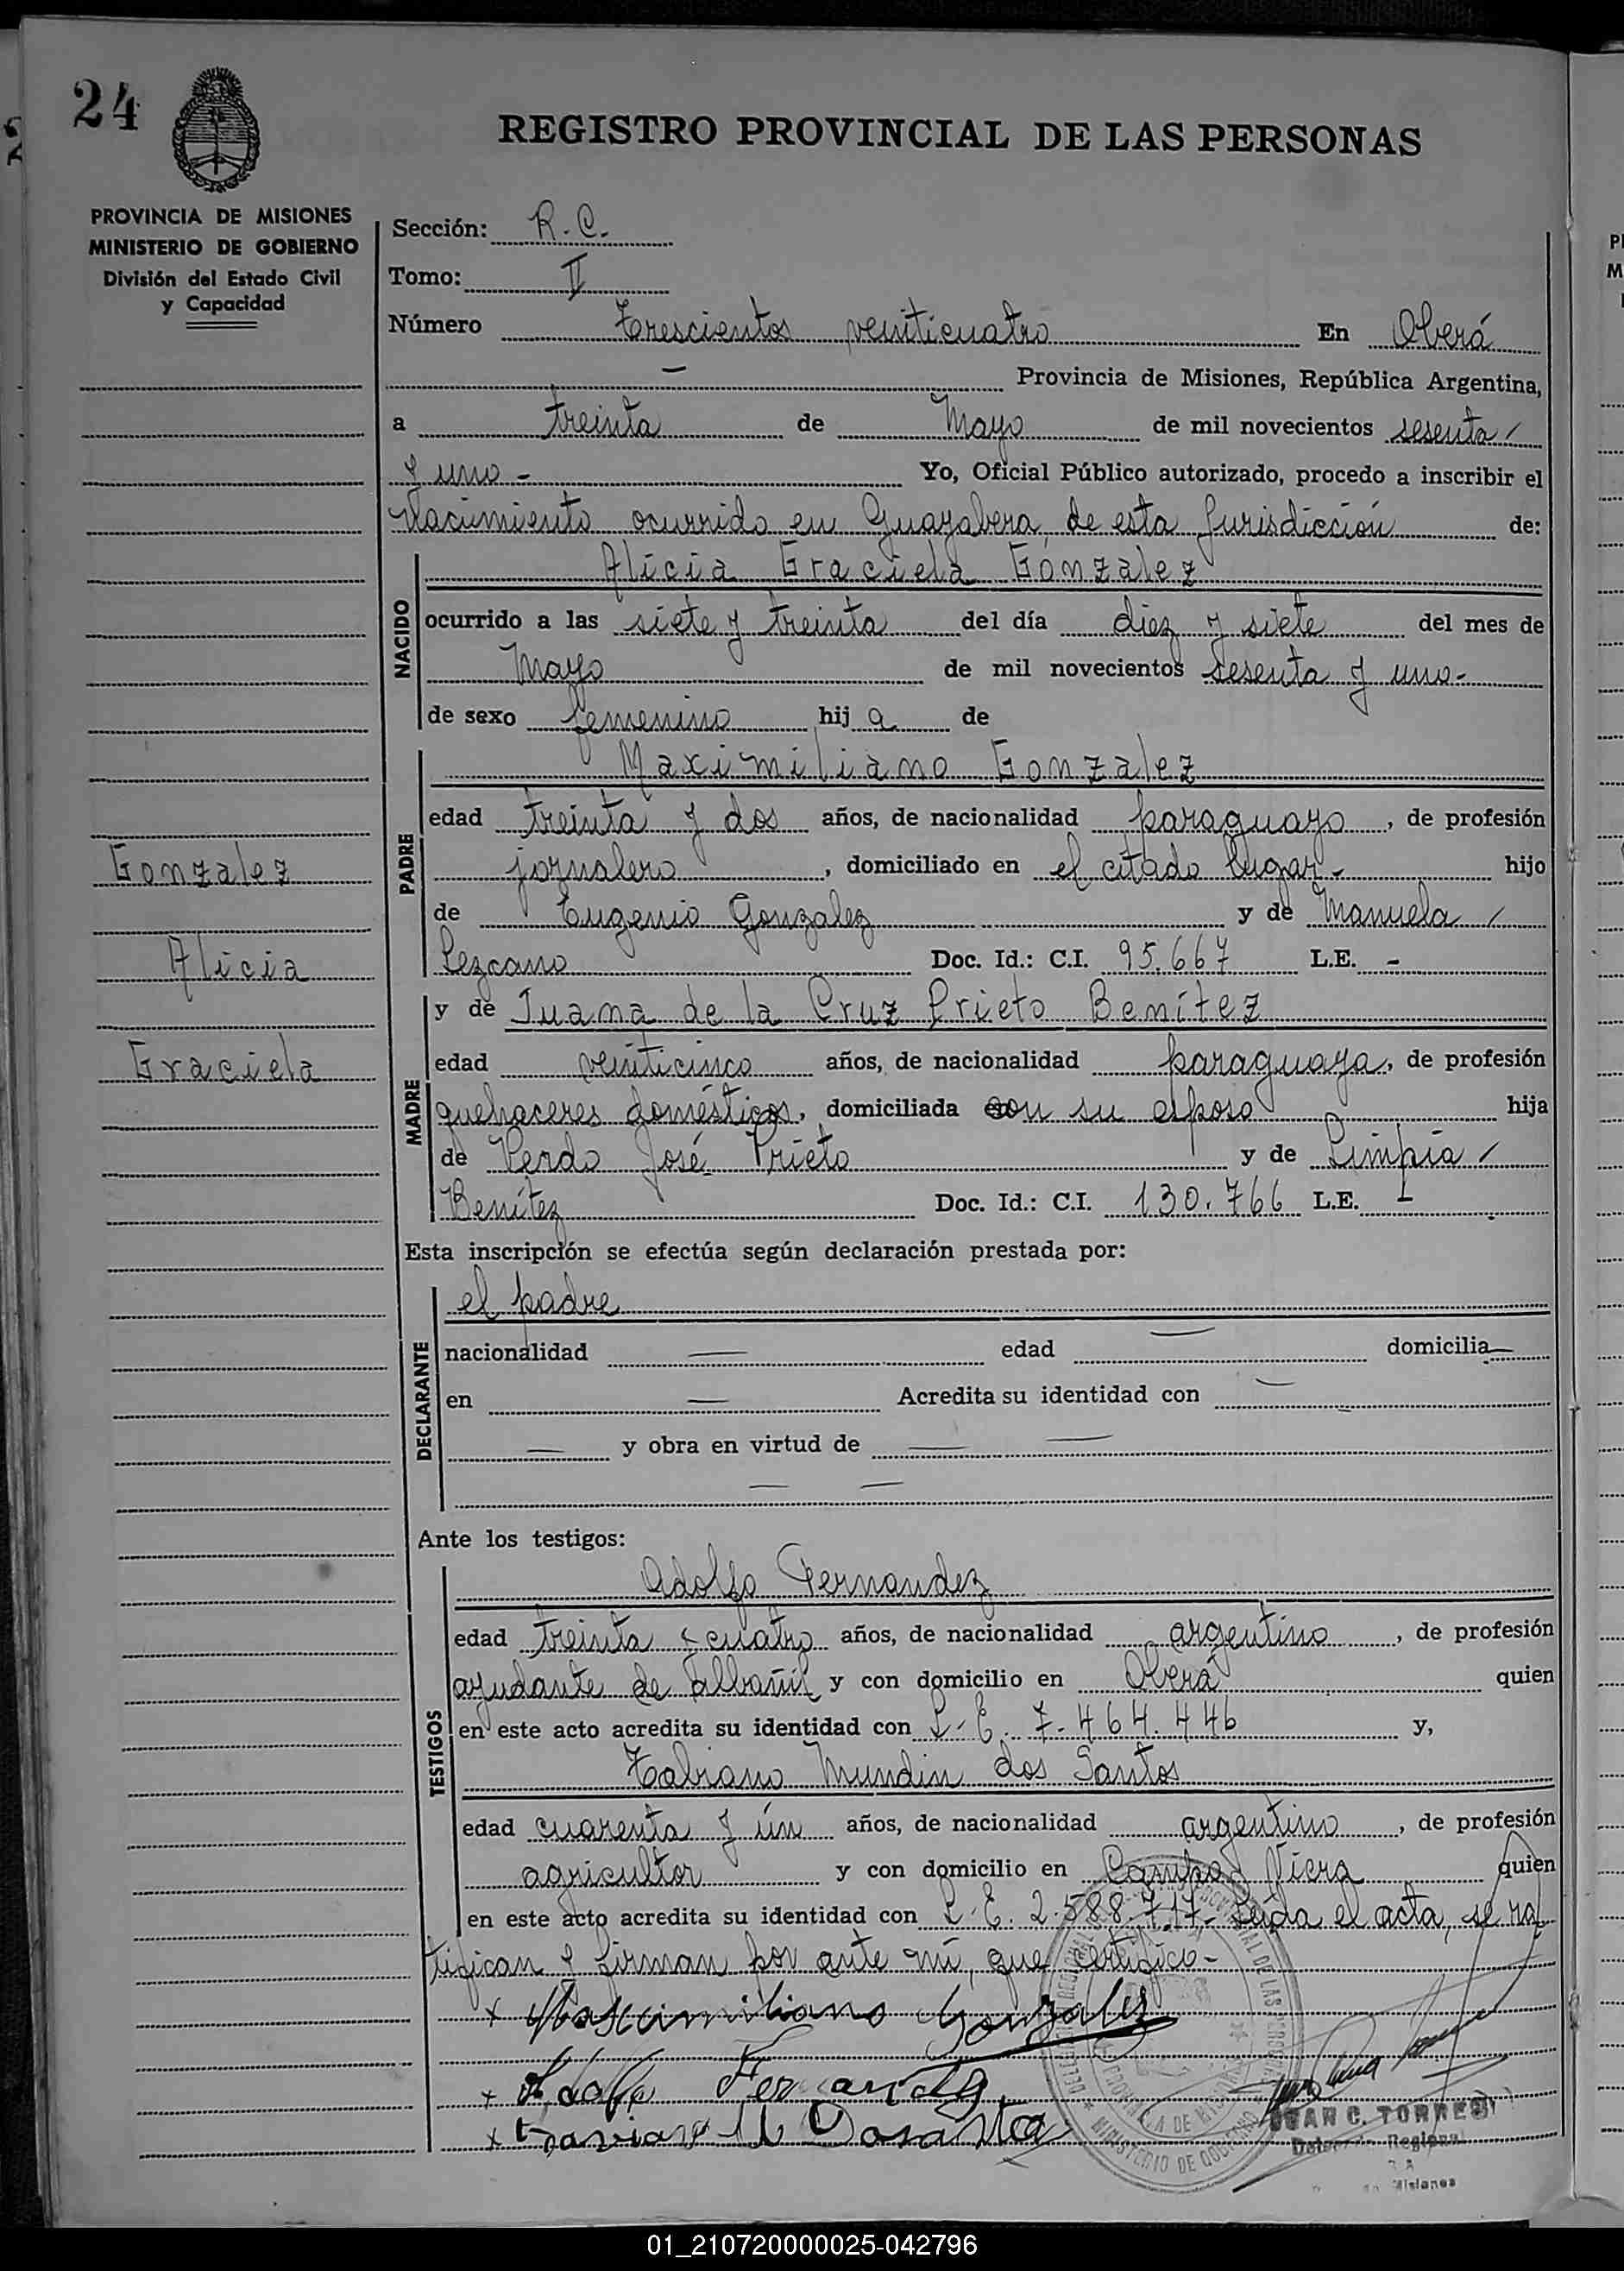 24
REGISTRO PROVINCIAL DE LAS PERSONAS
PROVINCIA DE MISIONES
MINISTERIO DE GOBIERNO
División del Estado Civil
y Capacidad
Sección: R. C.
Tomo: II
Número Trescientos veinticuatro En Oberá
— Provincia de Misiones, República Argentina,
a treinta de Mayo de mil novecientos sesenta /
y uno - Yo, Oficial Público autorizado, procedo a inscribir el
Nacimiento ocurrido en Guayabera, de esta Jurisdicción de:
NACIDO
Alicia Graciela González
ocurrido a las siete y treinta del día diez y siete del mes de
Mayo de mil novecientos sesenta y uno-
de sexo femenino hij a de
PADRE
Maximiliano Gonzalez
edad treinta y dos años, de nacionalidad paraguayo, de profesión
jornalero, domiciliado en el citado lugar- hijo
de Eugenio Gonzalez y de Manuela /
Lezcano Doc. Id.: C.I. 95.667 L.E. -
Gonzalez
Alicia
Graciela
MADRE
y de Juana de la Cruz Prieto Benítez
edad veinticinco años, de nacionalidad paraguaya, de profesión
quehaceres domésticos, domiciliada con su esposo hija
de José Prieto y de Limpia /
Benítez Doc. Id.: C.I. 130.766 L.E. -
Esta inscripción se efectúa según declaración prestada por:
DECLARANTE
el padre
nacionalidad — edad — domicilia—
en — Acredita su identidad con —
— y obra en virtud de — —
— —
Ante los testigos:
TESTIGOS
Adolfo Fernandez
edad treinta y cuatro años, de nacionalidad argentino, de profesión
ayudante de albañil y con domicilio en Oberá quien
en este acto acredita su identidad con L. E. 7.464.446 y,
Mundin dos Santos
edad cuarenta y ún años, de nacionalidad argentino, de profesión
agricultor y con domicilio en Campo Viera quien
en este acto acredita su identidad con L. E. 2.588.717- Leída el acta, se ra
tifican y firman por ante mí, que certifico-
x Mascimiliano Gonzalez
x Adolfo Fernandez
x
JUAN C. TORRES
Delegado Regional
Misiones
01_210720000025-042796